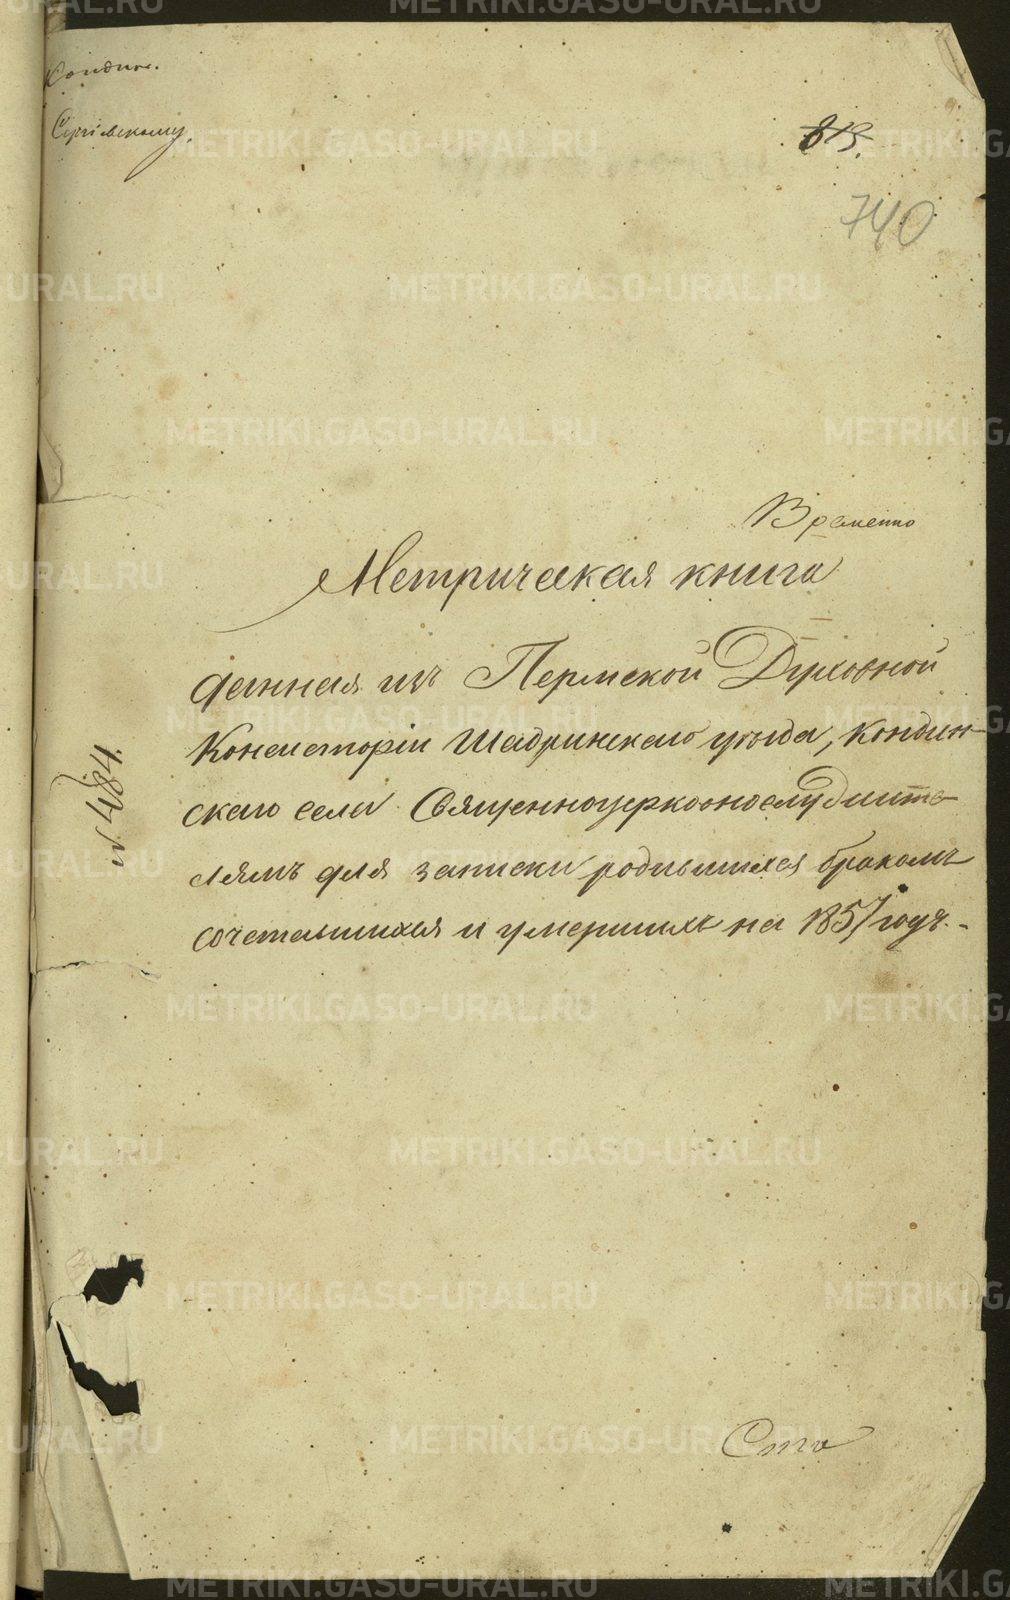 Кондин.
Сергiевскому.
813.
740
Временно
Метрическая книга
данная изъ Пермской Духовной
Консисторiи Шадринскаго уѣзда, Кондин-
скаго села Священноцерковнослужите-
лямъ для записки родившихся бракомъ
сочетавшихся и умершихъ на 1857 годъ.-
№ 484.
METRIKI.GASO-URAL.RU